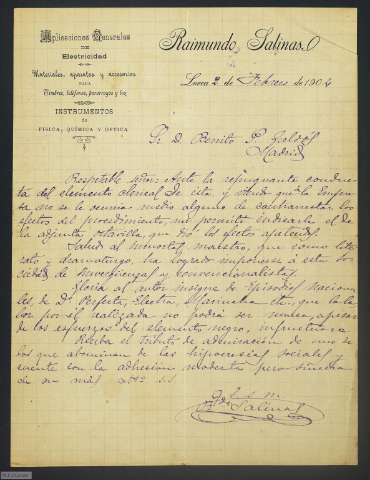 Aplicaciones Generales
DE
Electricidad
Materiales, aparatos y accesorios
PARA
Timbres, teléfonos, pararrayos y luz
INSTRUMENTOS
de
FÍSICA, QUÍMICA Y OPTICA
Raimundo Salinas
Lorca 2 de Febrero de 1904
Sr. D. Benito P. Galdós
Madrid
Respetable señor: Ante la repugnante conduc
ta del elemento clerical de ésta, y siendo que la Empre
sa no se le reunía medio alguno de contrarrestar los
efectos del procedimiento, me permito indicarle el de
la adjunta octavilla, que dió los efectos apetecidos.
Salud al inmortal maestro, que como lite
rato y dramaturgo, ha logrado imponerse á esta so
ciedad de convencionalistas
Gloria al autor insigne de Episodios Naciona
les, de Dª Perfecta, Electra, Marianela etc, que la la
bor por él realizada no podrá ser nunca, apesar
de los esfuerzos del elemento negro,
Reciba el tributo de admiración de uno de
los que abominan de las hipocresías sociales y
cuente con la adhesión modesta pero sincera
de su más affmo S.S.
q. b. s. m.
Rdo Salinas